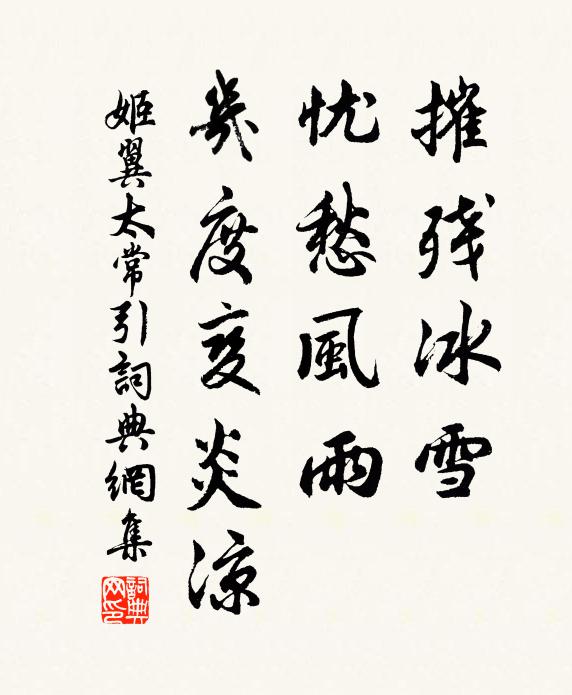 摧残冰雪
忧愁風雨
幾度变炎涼
姬翼太常引詞典網集
詞典网印